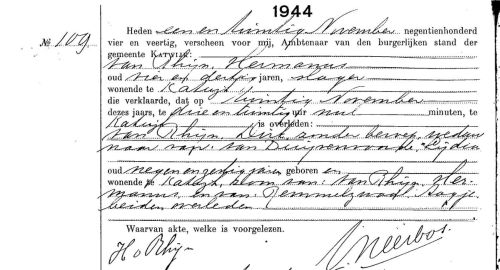 1944
№ 109
Heden een en twintig November negentienhonderd
vier en veertig, verscheen voor mij, Ambtenaar van den burgerlijken stand der
gemeente KATWIJK:
van Rhijn, Hermanus
oud vier en dertig jaren, slager
wonende te Katwijk
die verklaarde, dat op twintig November
dezes jaars, te drie en twintig uur nul minuten, te
Katwijk is overleden:
van Rhijn, Dirk zonder beroep, weduw
naar van van Duijvenvoorde, Lijdia
oud negen en zestig jaren geboren en
wonende te Katwijk, zoon van van Rhijn, Her-
manus en van Remmelzwaal, Aagje
beiden overleden
Waarvan akte, welke is voorgelezen.
H v Rhijn